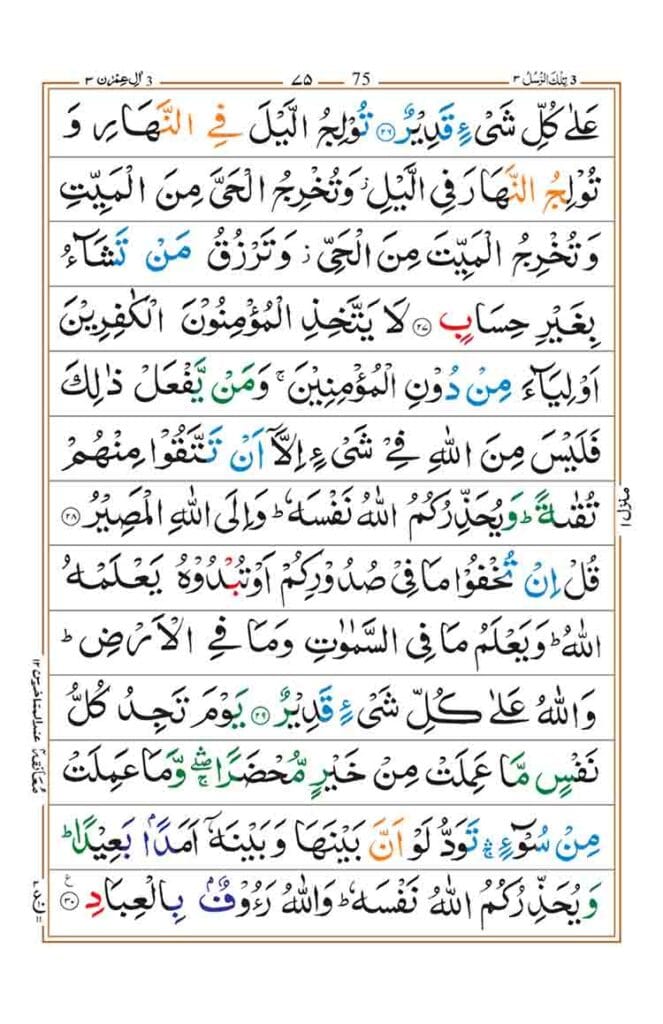 3 تِلْكَ الرُّسُلُ ٣
75 ٧٥
3 اٰلِ عِمْرٰن ٣
عَلٰى كُلِّ شَیْءٍ قَدِیْرٌ ﴿۲۶﴾ تُوْلِجُ الَّیْلَ فِی النَّهَارِ وَ
تُوْلِجُ النَّهَارَ فِی الَّیْلِ ؗ وَتُخْرِجُ الْحَیَّ مِنَ الْمَیِّتِ
وَتُخْرِجُ الْمَیِّتَ مِنَ الْحَیِّ ؗ وَتَرْزُقُ مَنْ تَشَآءُ
بِغَیْرِ حِسَابٍ ﴿۲۷﴾ لَا یَتَّخِذِ الْمُؤْمِنُوْنَ الْكٰفِرِیْنَ
اَوْلِیَآءَ مِنْ دُوْنِ الْمُؤْمِنِیْنَ ۚ وَمَنْ یَّفْعَلْ ذٰلِكَ
فَلَیْسَ مِنَ اللّٰهِ فِیْ شَیْءٍ اِلَّاۤ اَنْ تَتَّقُوْا مِنْهُمْ
تُقٰىةً ؕ وَیُحَذِّرُكُمُ اللّٰهُ نَفْسَهٗ ؕ وَاِلَى اللّٰهِ الْمَصِیْرُ ﴿۲۸﴾
قُلْ اِنْ تُخْفُوْا مَا فِیْ صُدُوْرِكُمْ اَوْ تُبْدُوْهُ یَعْلَمْهُ
اللّٰهُ ؕ وَیَعْلَمُ مَا فِی السَّمٰوٰتِ وَمَا فِی الْاَرْضِ ؕ
وَاللّٰهُ عَلٰى كُلِّ شَیْءٍ قَدِیْرٌ ﴿۲۹﴾ یَوْمَ تَجِدُ كُلُّ
نَفْسٍ مَّا عَمِلَتْ مِنْ خَیْرٍ مُّحْضَرًا ۛۖۚ وَّمَا عَمِلَتْ
مِنْ سُوْٓءٍ ۛۚ تَوَدُّ لَوْ اَنَّ بَیْنَهَا وَبَیْنَهٗۤ اَمَدًۢا بَعِیْدًا ؕ
وَیُحَذِّرُكُمُ اللّٰهُ نَفْسَهٗ ؕ وَاللّٰهُ رَءُوْفٌۢ بِالْعِبَادِ ﴿۳۰﴾ ع
منزل ۱
معانقة ۲ عند المتأخرين ۱۲